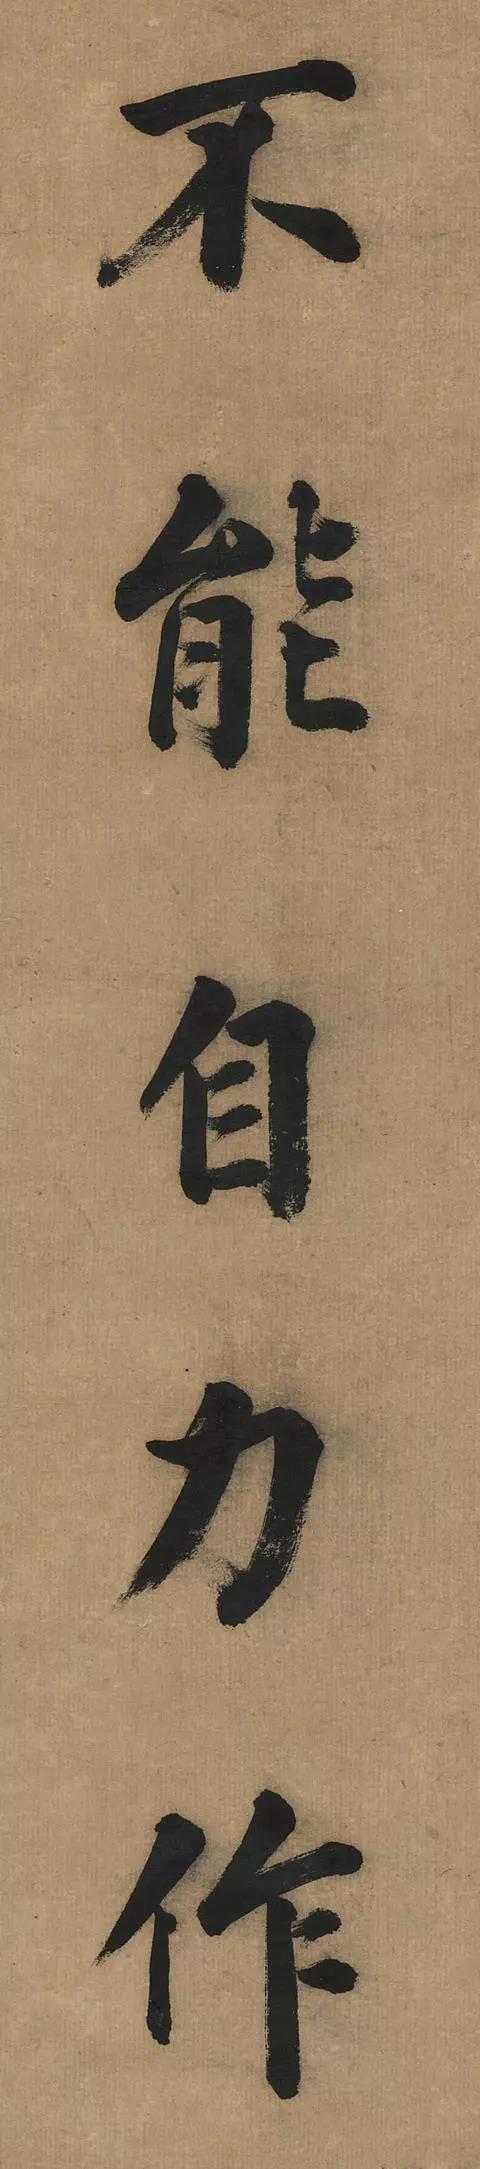 不能自力作